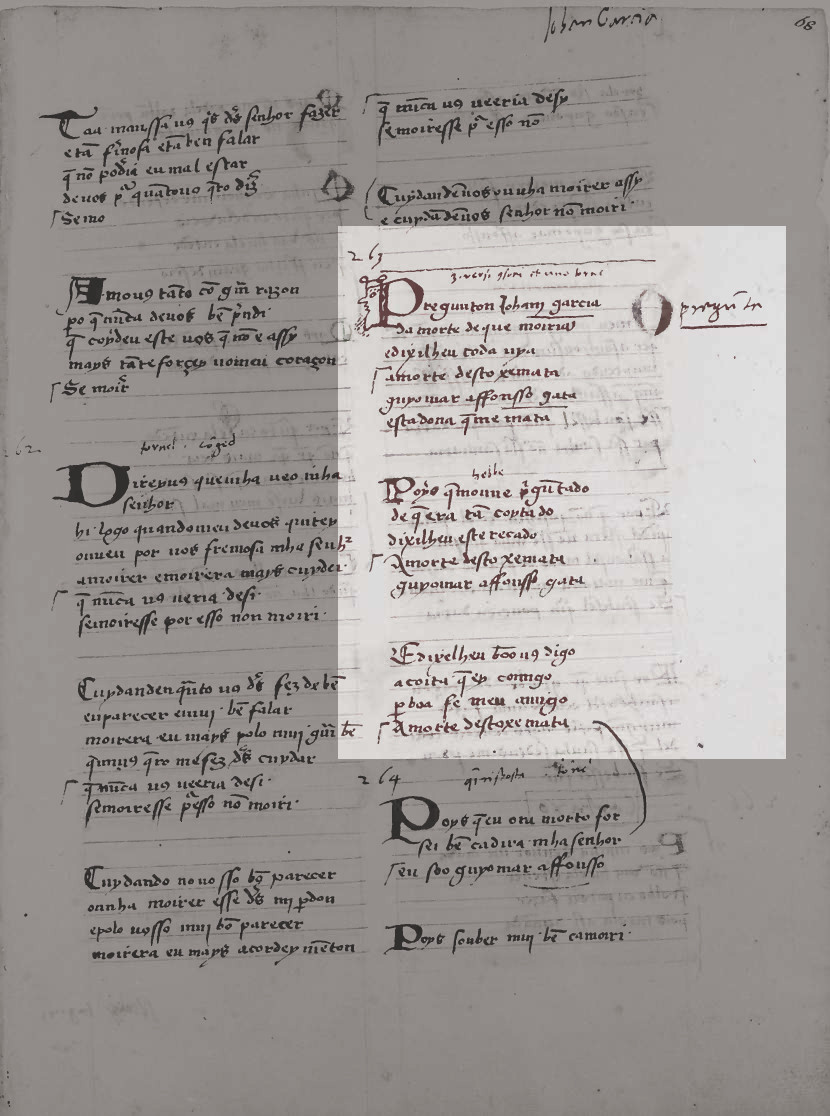 Johan Garcia
68
Taa manssa uꝯ q̄s d's senhor fazer
e tā f'mosa e tā ben falar
q̄ nō podia eu mal estar
de uos
Se mo
Amouꝯ tāto cō grā razon
po q̄ nūca de uos bē p'ndi
q̄ coydeu este uos q̄ nō e assy
mays tāte forçey no meu coraçon
Se moir'
262
tornel
Direyuꝯ que mha ueo mha
senhor
hi logo quando meu de uos quitey
ouueu por uos fremosa mha senhʳ
a moirer e moirera mays cuydei
q̄ nūca uꝯ ueria desi
se moiresse por esso non moiri
Cuydanden q̄nto uꝯ d's fez de bē
en parecer e mui bē falar
moirera eu mays polo mui grā bē
q̄ muꝯ q̄ro me fez d's cuydar
q̄ nūca uꝯ ueeria desi
se moiresse p̄ esso nō moiri
Cuydando no uosso bō parecer
ouuha moirer esse d's mi pdon
e polo uosso mui bō parecer
moirera eu mays acordey mēton
q̄ nūca uꝯ ueeria desy
se moiresse p̄ esso nō
Cuydandeuos ouuha moirer assy
e cuydādeuos senhor nō moiri
263
Preguntou Joham garcia
da morte de que moiria
e dixilheu toda uya
a morte desto xemata
guyomar affonsso gata
esta dona q̄ me mata
pregūta
Poys q̄ mouue p'gūtado
de q̄ era tā coytado
dixilheu este recado
A morte desto xemata
guyomar affonsso gata
E dixelheu bēo uꝯ digo
a coita q̄ ey comigo
p boa fe meu amigo
A morte desto xemata
264
Poys q̄ eu ora morto for
sei bē ca dira mha senhor
eu soo guyomar affonsso
Poys souber mui bē ca moiri